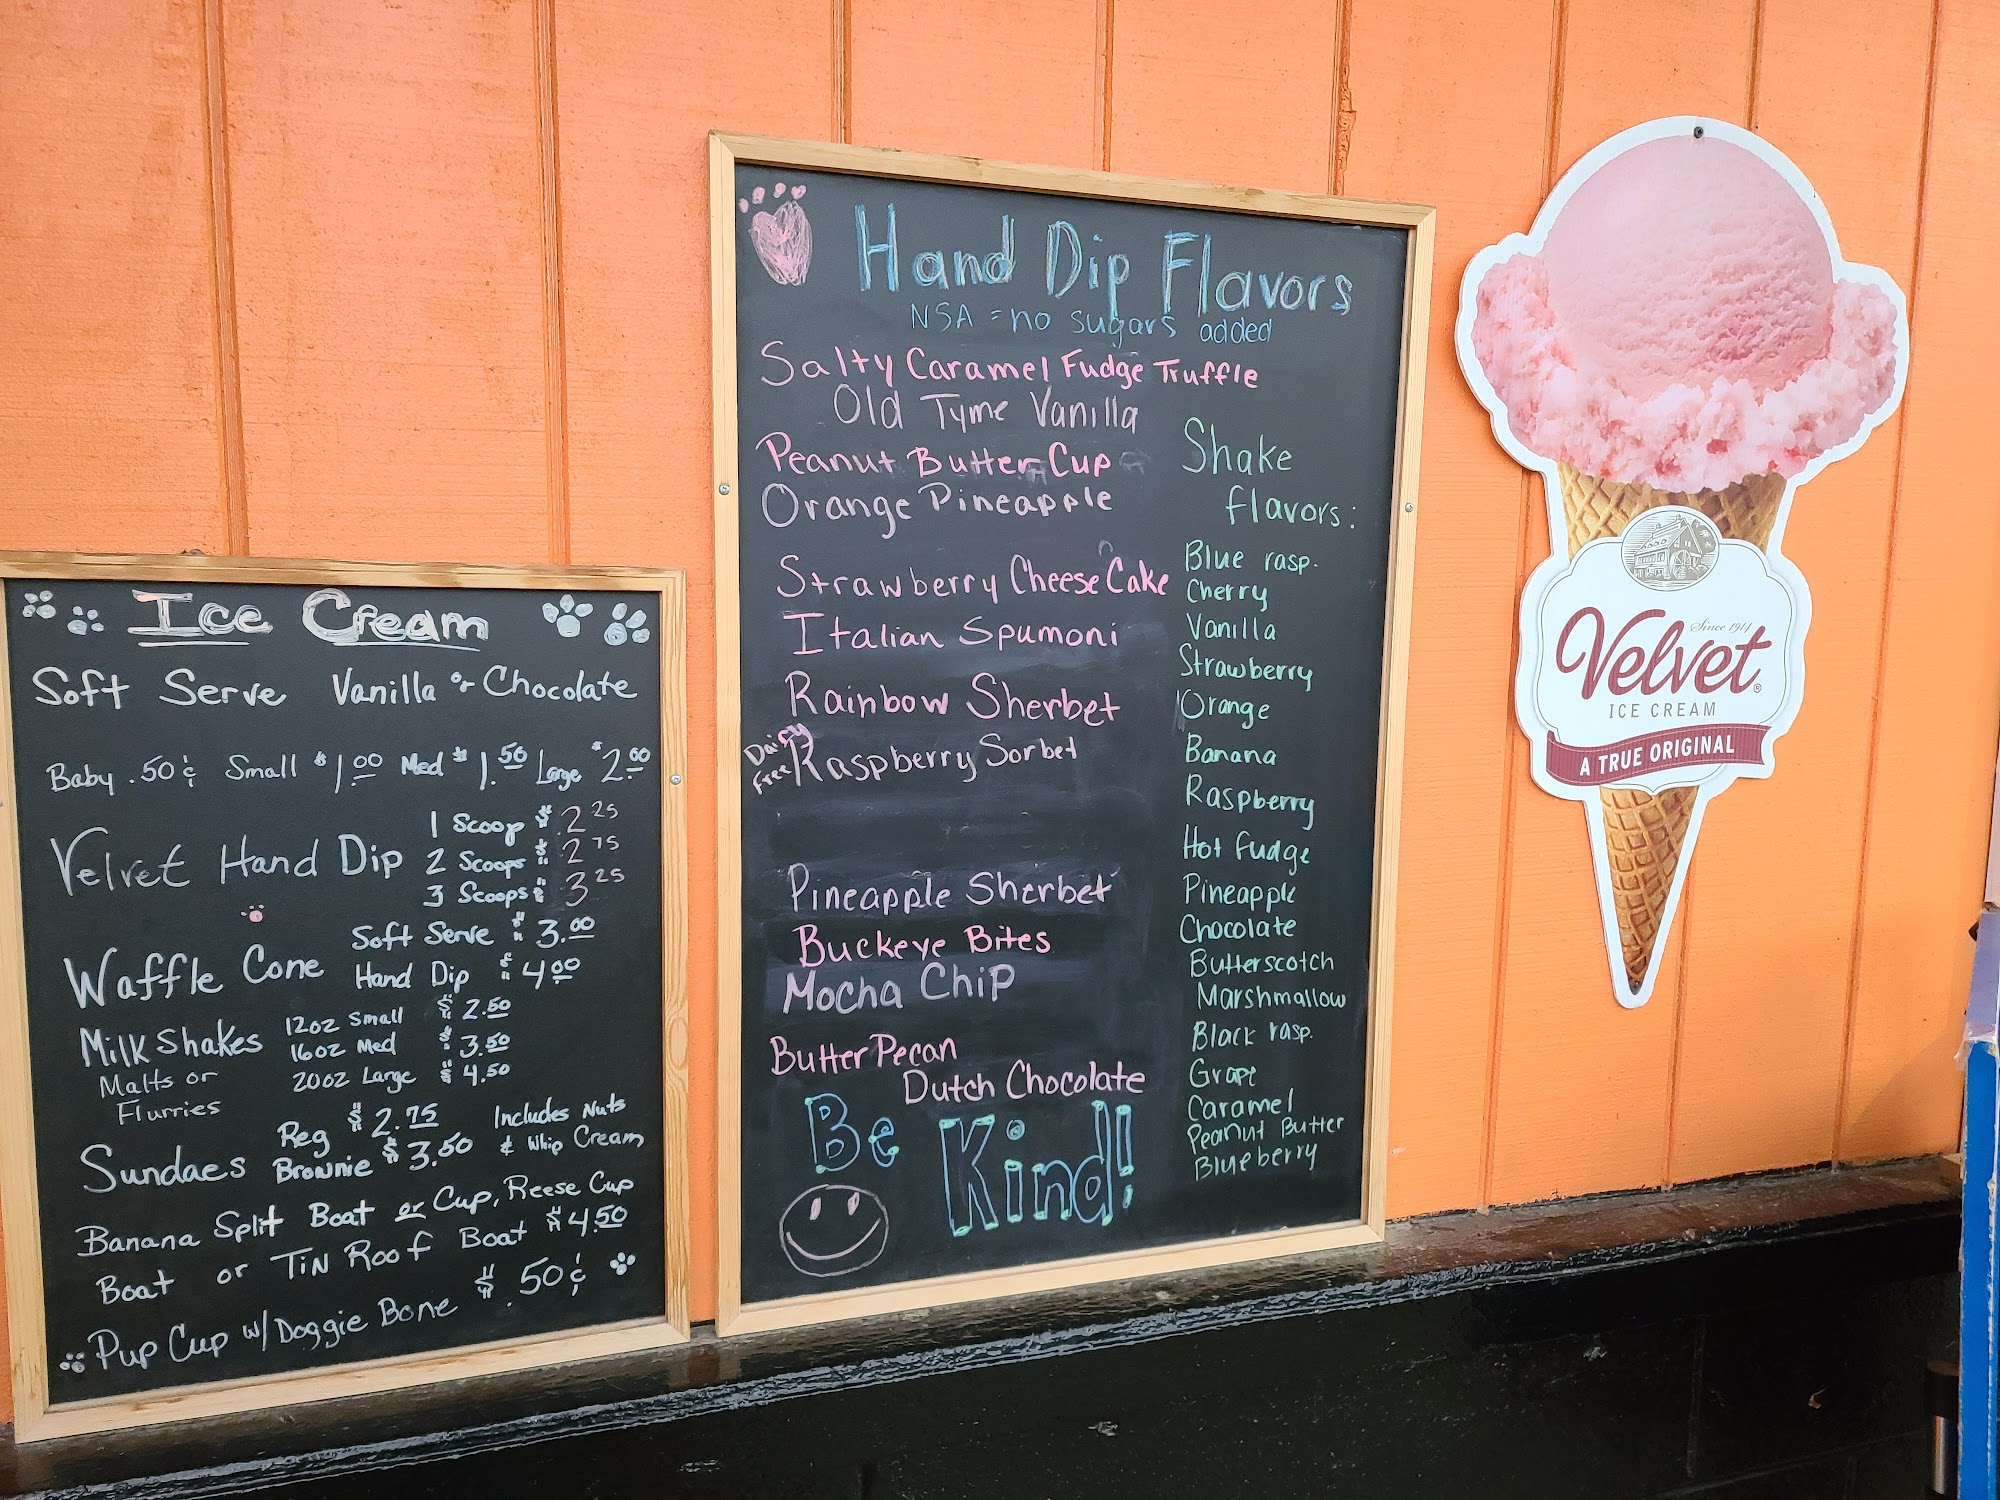 Ice Cream
Soft Serve Vanilla or Chocolate
Baby .50¢ Small $1.00 Med $1.50 Large $2.00
Velvet Hand Dip
1 Scoop $2.25
2 Scoops $2.75
3 Scoops $3.25
Waffle Cone
Soft Serve $3.00
Hand Dip $4.00
Milk Shakes
Malts or
Flurries
12oz Small $2.50
16oz Med $3.50
20oz Large $4.50
Sundaes
Reg $2.75
Brownie $3.50
Includes Nuts
& Whip Cream
Banana Split Boat or Cup, Reese Cup
Boat or Tin Roof Boat $4.50
Pup Cup w/Doggie Bone $.50¢
Hand Dip Flavors
NSA = no sugars added
Salty Caramel Fudge Truffle
Old Tyme Vanilla
Peanut Butter Cup
Orange Pineapple
Strawberry Cheese Cake
Italian Spumoni
Rainbow Sherbet
Dairy
Free
Raspberry Sorbet
Pineapple Sherbet
Buckeye Bites
Mocha Chip
Butter Pecan
Dutch Chocolate
Be Kind!
Shake
flavors:
Blue rasp.
Cherry
Vanilla
Strawberry
Orange
Banana
Raspberry
Hot Fudge
Pineapple
Chocolate
Butterscotch
Marshmallow
Black rasp.
Grape
Caramel
Peanut Butter
Blueberry
Since 1914
Velvet®
ICE CREAM
A TRUE ORIGINAL